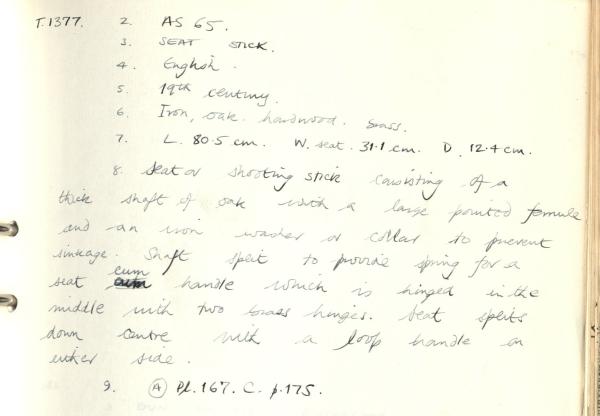 T.1377. 2. AS 65.
3. SEAT STICK.
4. English.
5. 19th century.
6. Iron, oak. hardwood. brass.
7. L. 80.5 cm. W. seat. 31.1 cm. D. 12.4 cm.
8. Seat or shooting stick consisting of a
thick shaft of oak with a large pointed ferrule
and an iron washer or collar to prevent
sinkage. Shaft split to provide spring for a
seat cum handle which is hinged in the
middle with two brass hinges. Seat splits
down centre with a loop handle on
either side.
9. (A) Pl. 167. C. p. 175.